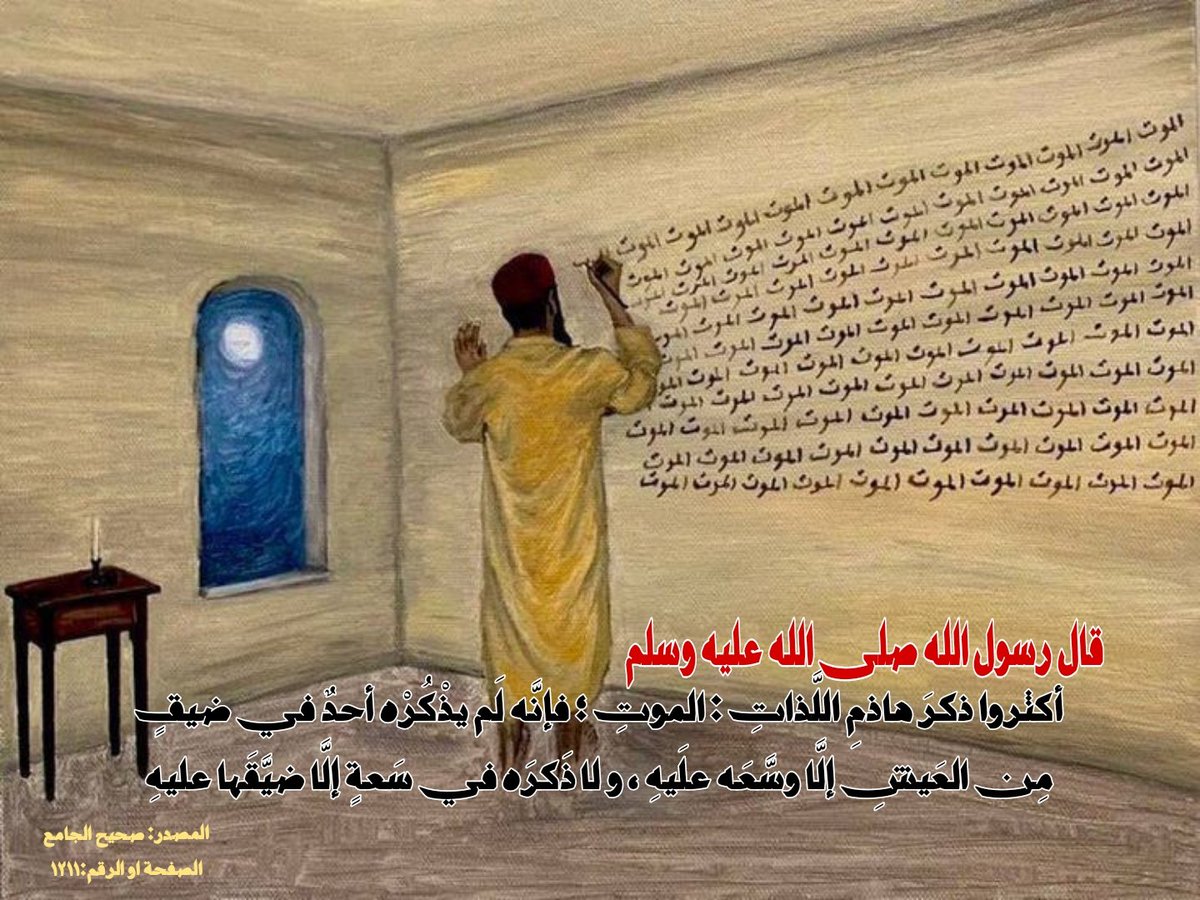 الموت الموت الموت الموت الموت الموت الموت الموت الموت الموت الموت
الموت الموت الموت الموت الموت الموت الموت الموت الموت الموت الموت
الموت الموت الموت الموت الموت الموت الموت الموت الموت الموت الموت
الموت الموت الموت الموت الموت الموت الموت الموت الموت الموت
الموت الموت الموت الموت الموت الموت الموت الموت الموت الموت
الموت الموت الموت الموت الموت الموت الموت الموت الموت الموت
الموت الموت الموت الموت الموت الموت الموت الموت الموت الموت
الموت الموت الموت الموت الموت الموت الموت الموت الموت الموت
الموت الموت الموت الموت الموت الموت الموت الموت الموت الموت
الموت الموت الموت الموت الموت الموت الموت الموت الموت الموت
الموت الموت الموت الموت الموت الموت الموت الموت الموت الموت
قال رسول الله صلى الله عليه وسلم
أكثروا ذكرَ هاذمِ اللَّذاتِ : الموتِ ؛ فإنَّه لَم يذْكُرْه أحدٌ في ضيقٍ
مِن العَيشِ إلَّا وسَّعَه علَيهِ ، و لا ذَكرَه في سَعةٍ إلَّا ضيَّقَها عليهِ
المصدر: صحيح الجامع
الصفحة او الرقم:١٢١١